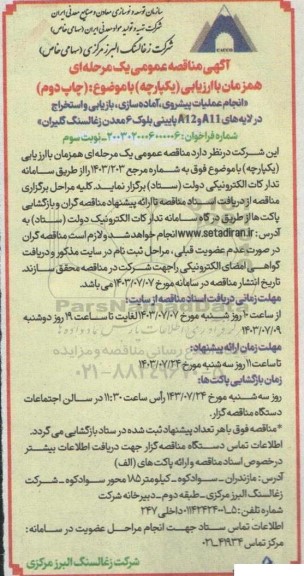 سازمان توسعه و نوسازی معادن و صنایع معدنی ایران
شرکت تهیه و تولید مواد معدنی ایران (سهامی خاص)
شرکت زغالسنگ البرز مرکزی (سهامی خاص)
آگهی مناقصه عمومی یک مرحله ای
همزمان با ارزیابی (یکپارچه) با موضوع: (چاپ دوم)
«انجام عملیات پیشروی، آماده سازی، بازیابی و استخراج
در لایه های A11 و A12 پایینی بلوک ۶ معدن زغالسنگ گلیران»
شماره فراخوان: ۲۰۰۳۰۲۰۰۰۶۰۰۰۰۰۶ نوبت سوم
این شرکت در نظر دارد مناقصه عمومی یک مرحله ای همزمان با ارزیابی
(یکپارچه) با موضوع فوق به شماره مرجع ۱۴۰۳/۲۰۳ را از طریق سامانه
تدارکات الکترونیکی دولت (ستاد) برگزار نمایند. کلیه مراحل برگزاری
مناقصه از دریافت اسناد مناقصه تا ارائه پیشنهاد مناقصه گران و بازگشایی
پاکت ها از طریق درگاه سامانه تدارکات الکترونیک دولت (ستاد) به
آدرس: www.setadiran.ir انجام خواهد شد و لازم است مناقصه گران
در صورت عدم عضویت قبلی، مراحل ثبت نام در سایت مذکور و دریافت
گواهی امضای الکترونیکی را جهت شرکت در مناقصه محقق سازند.
تاریخ انتشار مناقصه در سامانه مورخ ۱۴۰۳/۰۷/۰۷ می باشد.
مهلت زمانی دریافت اسناد مناقصه از سایت:
از ساعت ۱۰ روز شنبه مورخ ۱۴۰۳/۰۷/۰۷ لغایت تا ساعت ۱۹ روز دوشنبه
۱۴۰۳/۰۷/۰۹
مهلت زمان ارائه پیشنهاد:
تا ساعت ۱۱ روز سه شنبه مورخ ۱۴۰۳/۰۷/۲۴
زمان بازگشایی پاکت ها:
روز سه شنبه مورخ ۱۴۰۳/۰۷/۲۴ رأس ساعت ۱۱:۳۰ در سالن اجتماعات
دستگاه مناقصه گزار.
*مناقصه فوق با هر تعداد پیشنهاد ثبت شده در ستاد بازگشایی می گردد.
اطلاعات تماس دستگاه مناقصه گزار جهت دریافت اطلاعات بیشتر
در خصوص اسناد مناقصه و ارائه پاکت های (الف)
آدرس: مازندران _ سوادکوه _ کیلومتر ۱۸۵ محور سوادکوه _ شرکت
زغالسنگ البرز مرکزی _ طبقه دوم _ دبیرخانه شرکت
شماره تلفن: ۵-۰۱۱۴۲۴۲۴۰۰۱ داخلی ۲۴۷
اطلاعات تماس ستاد جهت انجام مراحل عضویت در سامانه:
مرکز تماس ۴۱۹۳۴-۰۲۱
شرکت زغالسنگ البرز مرکزی